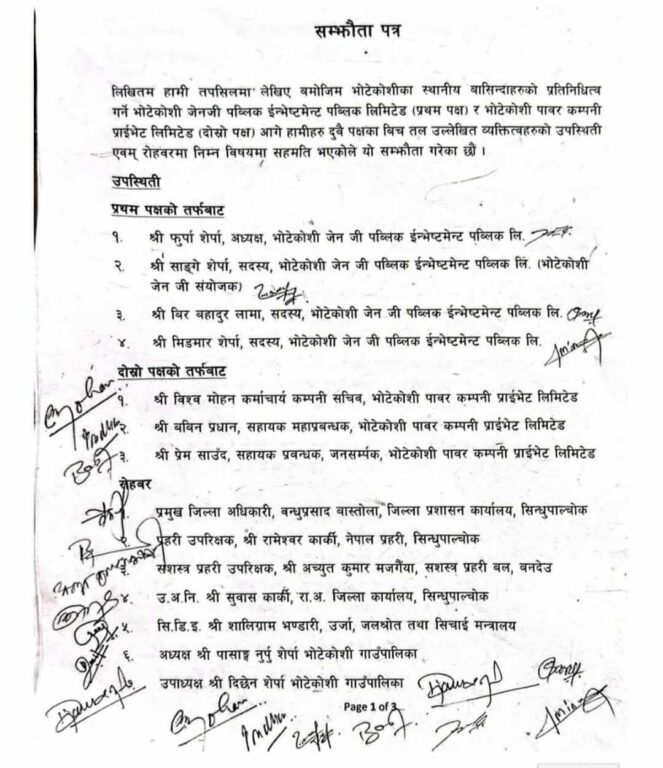 सम्झौता पत्र
लिखितम हामी तपसिलमा लेखिए बमोजिम भोटेकोशीका स्थानीय बासिन्दाहरुको प्रतिनिधित्व
गर्ने भोटेकोशी जेनजी पब्लिक ईन्भेष्टमेन्ट पब्लिक लिमिटेड (प्रथम पक्ष) र भोटेकोशी पावर कम्पनी
प्राईभेट लिमिटेड (दोस्रो पक्ष) आगे हामीहरु दुवै पक्षका बिच तल उल्लेखित व्यक्तित्वहरुको उपस्थिती
एवम् रोहवरमा निम्न विषयमा सहमति भएकोले यो सम्झौता गरेका छौ ।
उपस्थिती
प्रथम पक्षको तर्फबाट
१. श्री फुर्पा शेर्पा, अध्यक्ष, भोटेकोशी जेन जी पब्लिक ईन्भेष्टमेन्ट पब्लिक लि.
२. श्री साङ्गे शेर्पा, सदस्य, भोटेकोशी जेन जी पब्लिक ईन्भेष्टमेन्ट पब्लिक लि. (भोटेकोशी
जेन जी संयोजक)
३. श्री बिर बहादुर लामा, सदस्य, भोटेकोशी जेन जी पब्लिक ईन्भेष्टमेन्ट पब्लिक लि.
४. श्री मिडमार शेर्पा, सदस्य, भोटेकोशी जेन जी पब्लिक ईन्भेष्टमेन्ट पब्लिक लि.
दोस्रो पक्षको तर्फबाट
१. श्री विश्व मोहन कर्माचार्य कम्पनी सचिव, भोटेकोशी पावर कम्पनी प्राईभेट लिमिटेड
२. श्री बबिन प्रधान, सहायक महाप्रबन्धक, भोटेकोशी पावर कम्पनी प्राईभेट लिमिटेड
३. श्री प्रेम साउंद, सहायक प्रबन्धक, जनसर्म्पक, भोटेकोशी पावर कम्पनी प्राईभेट लिमिटेड
रोहवर
प्रमुख जिल्ला अधिकारी, वन्धुप्रसाद वास्तोला, जिल्ला प्रशासन कार्यालय, सिन्धुपाल्चोक
प्रहरी उपरिक्षक, श्री रामेश्वर कार्की, नेपाल प्रहरी, सिन्धुपाल्चोक
३. सशस्त्र प्रहरी उपरिक्षक, श्री अच्युत कुमार मजगैंया, सशस्त्र प्रहरी बल, वनदेउ
४. उ.अ.नि. श्री सुवास कार्की, रा.अ. जिल्ला कार्यालय, सिन्धुपाल्चोक
५. सि.डि.इ. श्री शालिग्राम भण्डारी, उर्जा, जलश्रोत तथा सिचाई मन्त्रालय
६. अध्यक्ष श्री पासाङ्ग नुर्पु शेर्पा भोटेकोशी गाउँपालिका
उपाध्यक्ष श्री दिछेन शेर्पा भोटेकोशी गाउँपालिका
Page 1 of 3